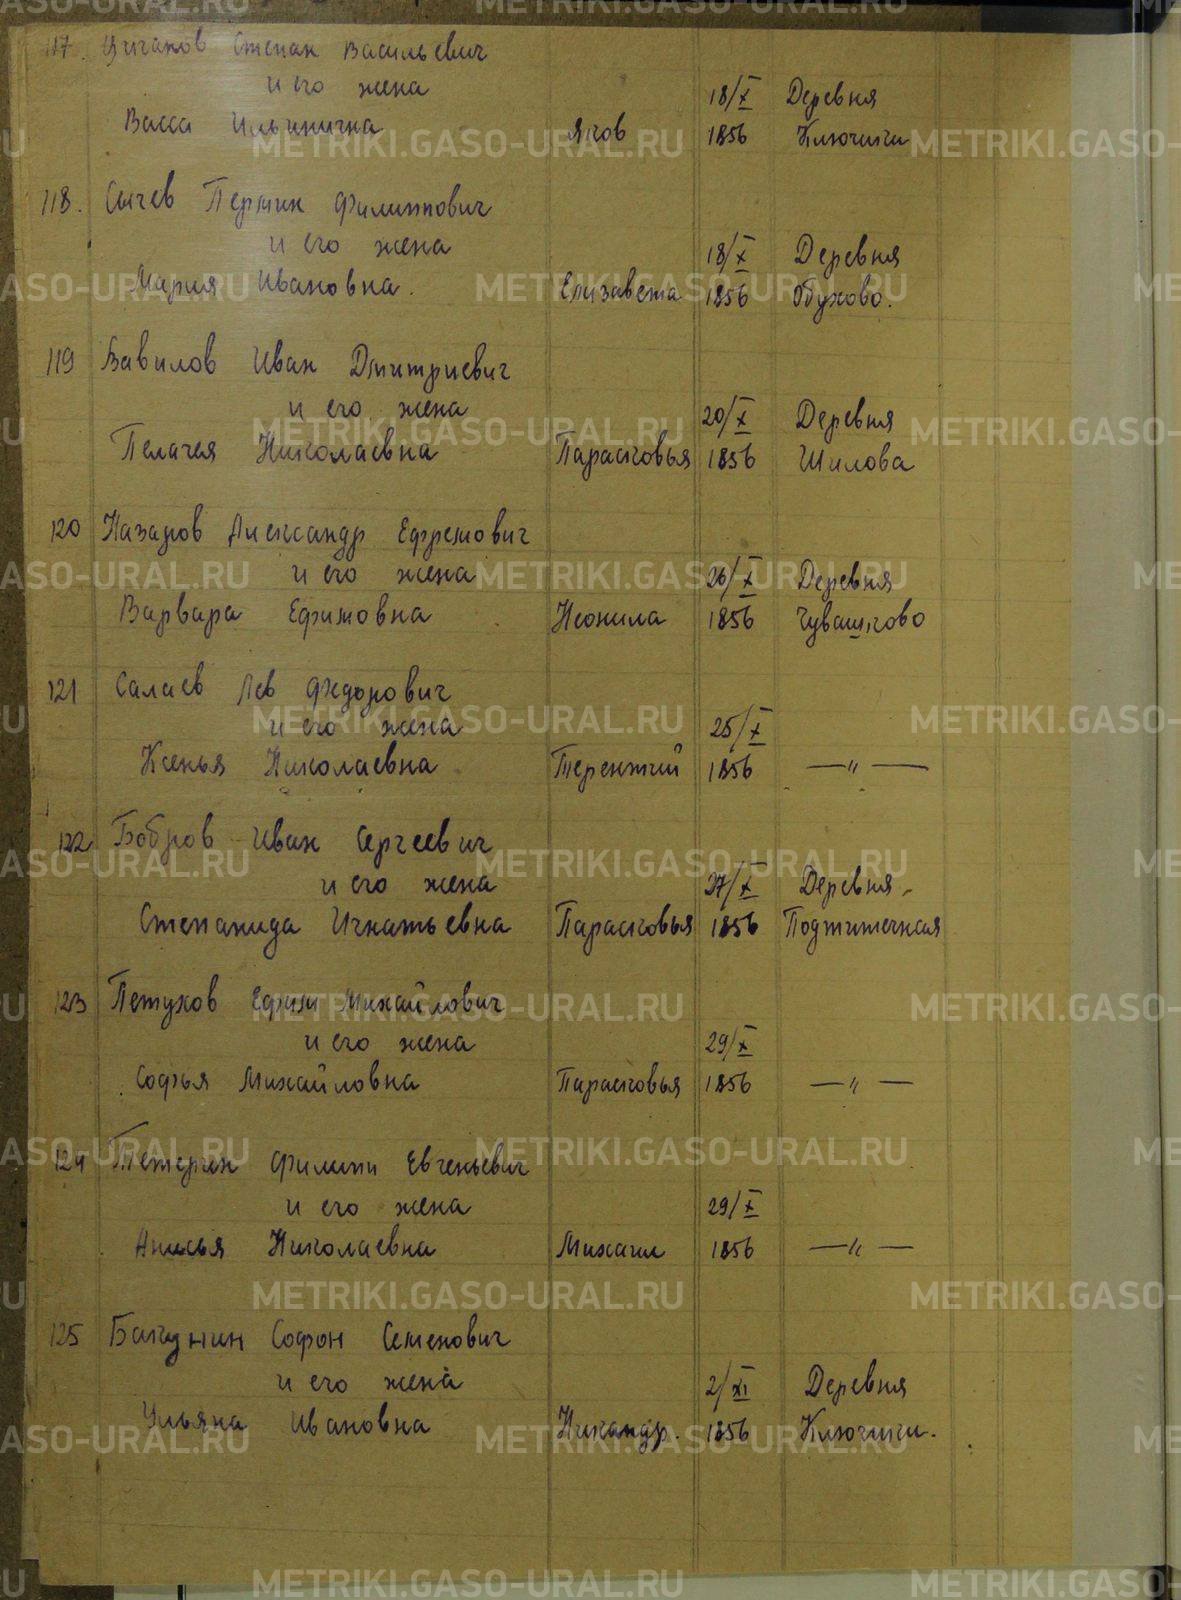 117. Цыганов Степан Васильевич
и его жена 18/X Деревня
Васса Ильинична Яков 1856 Ключики
118. Сычев Пермин Филиппович
и его жена 18/X Деревня
Мария Ивановна. Елизавета 1856 Обухово.
119 Вавилов Иван Дмитриевич
и его жена 20/X Деревня
Пелагея Николаевна Парасковья 1856 Шилова
120 Назаров Александр Ефремович
и его жена 26/X Деревня
Варвара Ефимовна Неонила 1856 Чувашково
121 Салаев Лев Федорович
и его жена 25/X
Ксенья Николаевна Терентий 1856 — " —
122 Бобров Иван Сергеевич
и его жена 27/X Деревня
Степанида Игнатьевна Парасковья 1856
123 Петухов Ефим Михайлович
и его жена 29/X
Софья Михайловна Парасковья 1856 — " —
124 Филипп Евгеньевич
и его жена 29/X
Анисья Николаевна Михаил 1856 — " —
125 Бакунин Софон Семенович
и его жена 2/XI Деревня
Ульяна Ивановна Никандр. 1856 Ключики.
METRIKI.GASO-URAL.RU